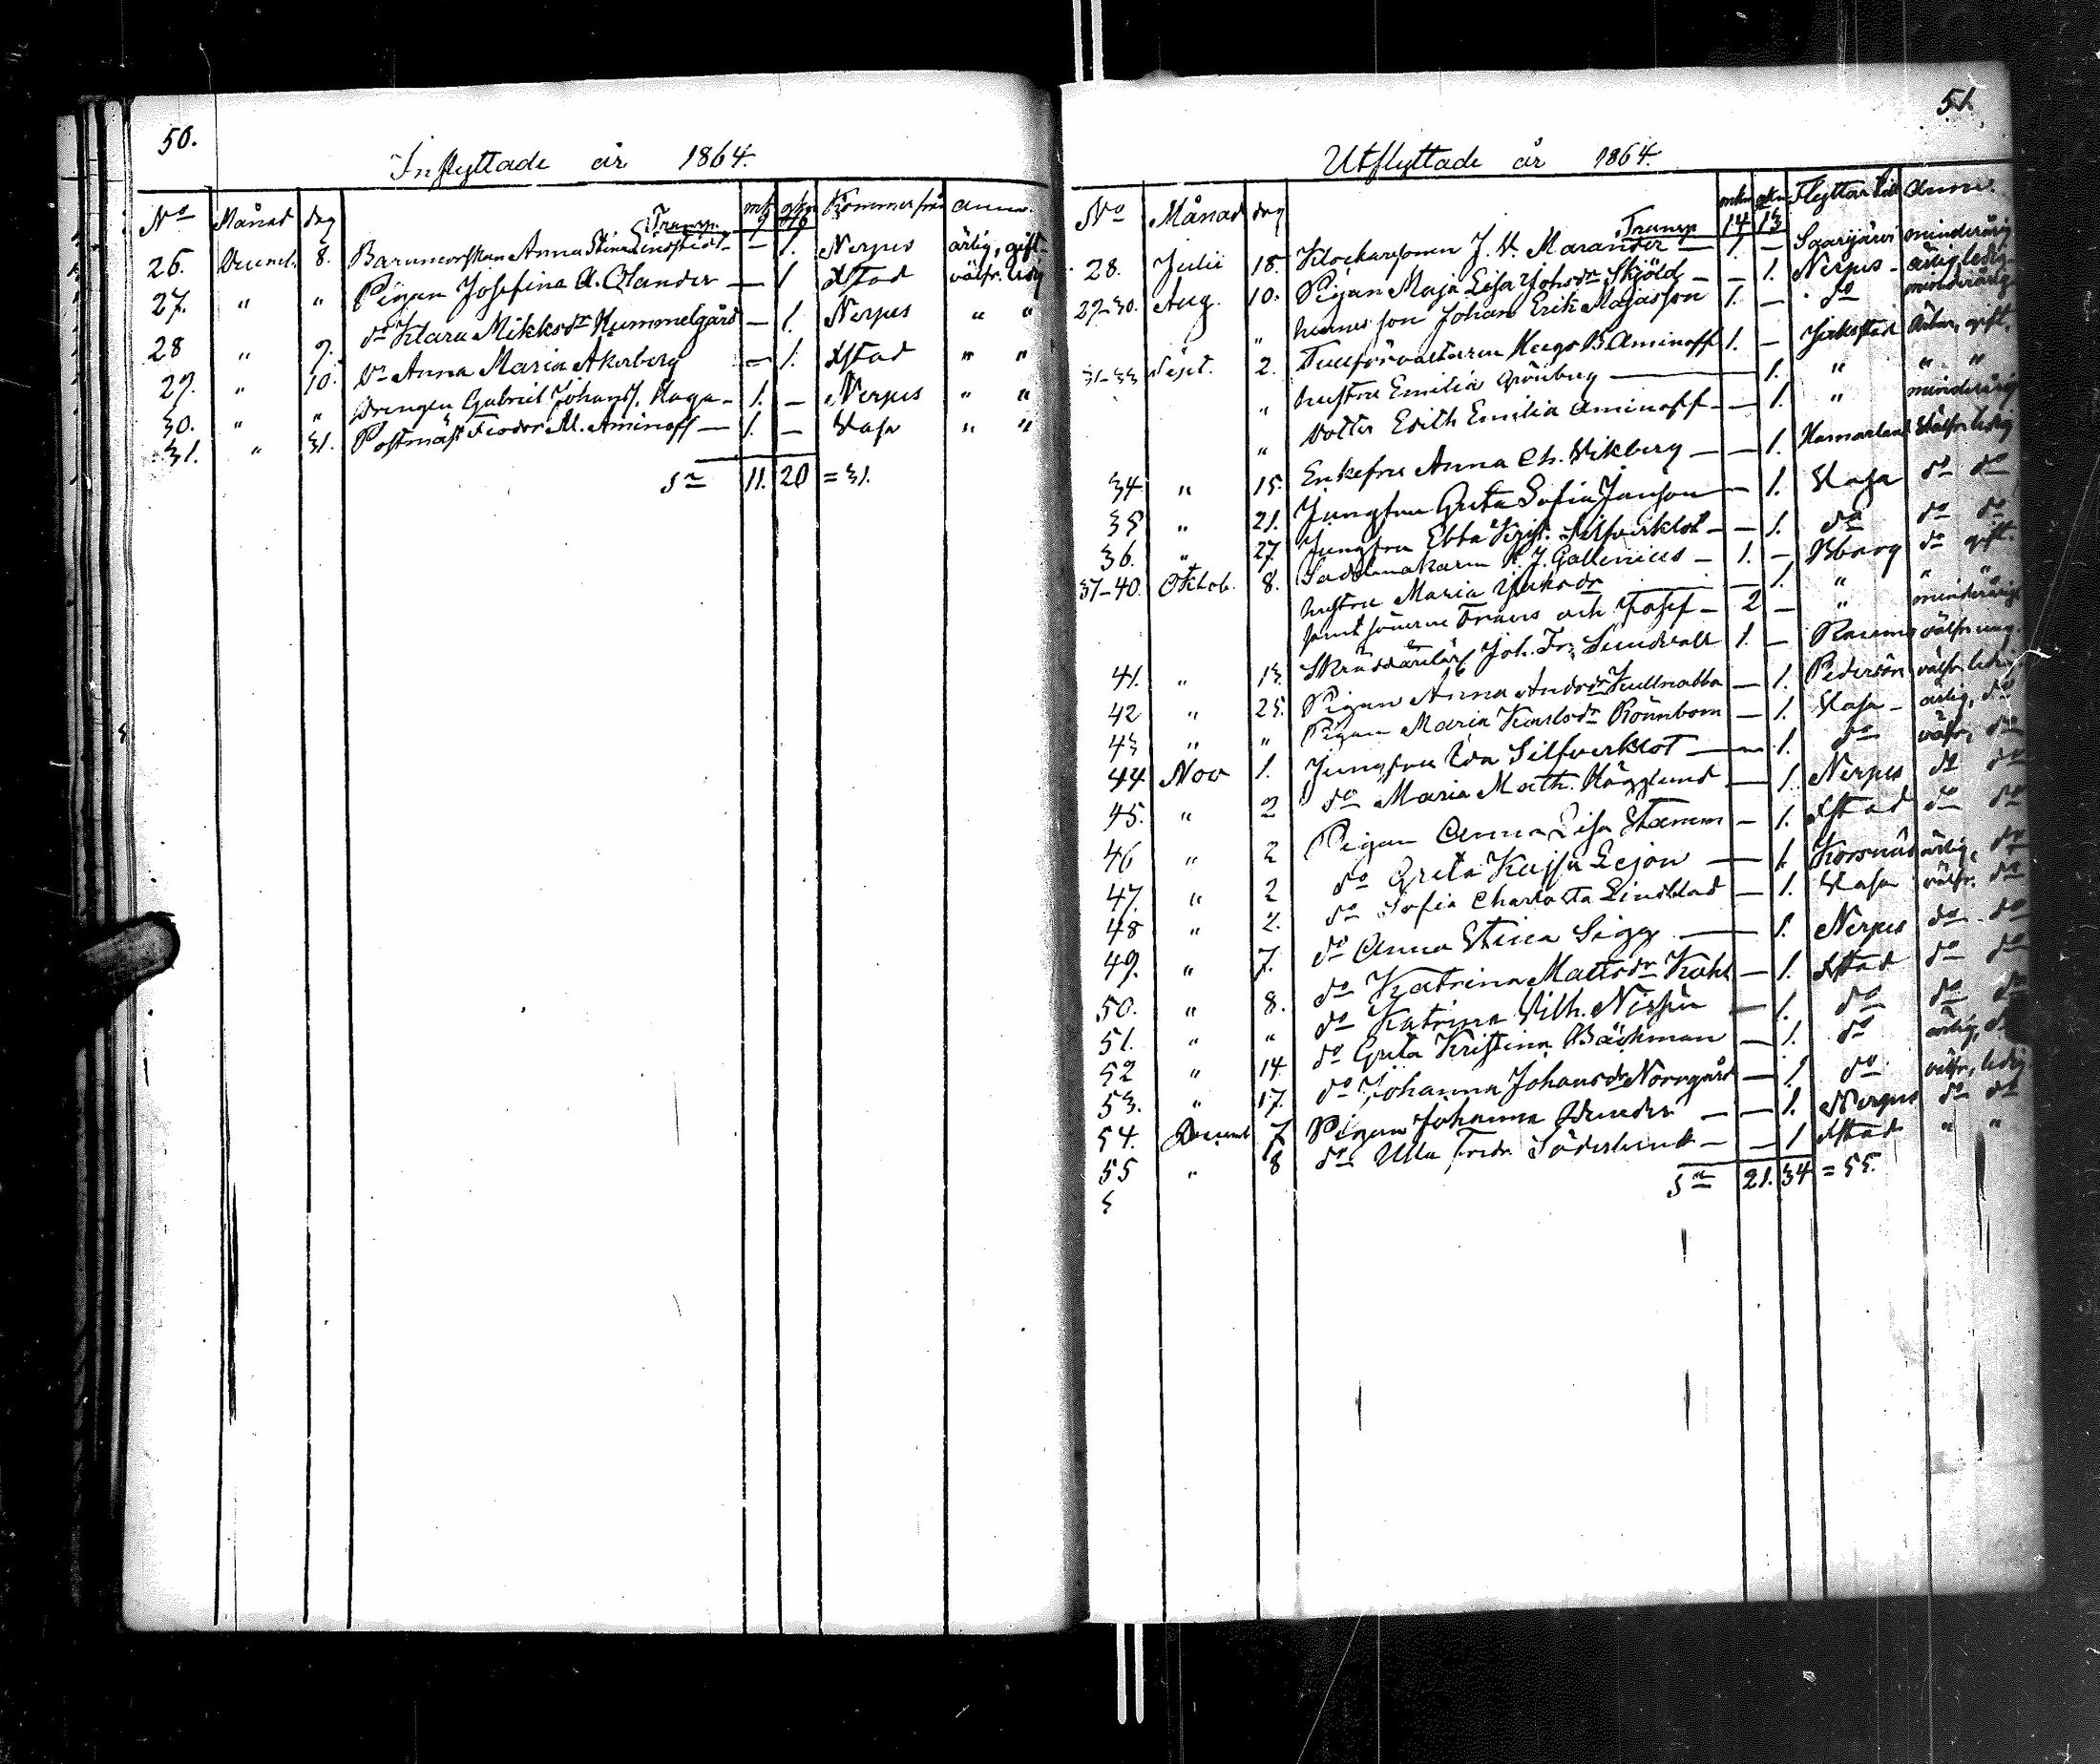 50.
Inflyttade år 1864.
No Månad dag Transp. mk qk Kommer från Anm.
9 16
26. Decemb. 8. Barnmorskan Anna Stina Lindstedt — 1. Nerpes ärlig, gift.
27. " " Pigan Josefina A. Ölander — 1 Xstad välfr. ledig
28 " 9. do Klara Mikksdr Hummelgård — 1. Nerpes " "
29. " 10. do Anna Maria Åkerberg — 1. Xstad " "
30. " " Drengen Gabriel Johans. Haga — 1. — Nerpes " "
31. " 31. Postmäst. Feodor M. Aminoff — 1. — Vasa " "
Sa 11. 20 = 31.
51.
Utflyttade år 1864.
No Månad dag Transp mkn qkn Flyttar till Anm.
14 13
28. Julii 18. Klockaresonen J. V. Marander — 1 — Saarijärvi minderårig
29-30. Aug. 10. Pigan Maja Lisa Johsdr Skjöld — — 1. Nerpes ärlig ledig
" hennes son Johan Erik Majasson 1. — do minderårig
31-33 Sept. 2. Tullförvaltaren Hugo B. Aminoff 1. — Jakobstad ärbar, gift.
" hustru Emilia Grönberg — 1. " " "
" dotter Edith Emilia Aminoff — — 1. " minderårig
34 " 15. Enkefru Anna Ch. Vikberg — — 1. Hamarland välfr. ledig
35 " 21. Jungfru Greta Sofia Janson — 1. Vasa do do
36. " 27 Jungfru Ebba Krist. Silfverklot — — 1. do do do
37-40. Oktob. 8. Sadelmakaren K. J. Gallenius — 1. — Bborg do gift.
hustru Maria Jaksdr — 1. " " "
samt sönerne Frans och Josef — 2 — " minderårige
41. " 13. Skräddarelär. Joh. Fr. Sundvall 1. — Raumo välfr. ung
42 " 25. Pigan Anna Andsdr Kullnabba — 1. Pedersöre välfr. ledig
43 " " Pigan Maria Karlsdr Rönnbom — 1. Vasa — ärlig, do
44 Nov 1. Jungfru Eva Silfverklot — 1. do välfr, do
45. " 2 do Maria Math. Hägglund — 1. Nerpes do do
46 " 2 Pigan Anna Lisa Stamm — 1. Xstad do do
47. " 2 do Greta Kajsa Lejon — 1. Korsnäs ärlig, do
48 " 2. do Sofia Charlotta Lindblad — 1. Vasa välfr. do
49. " 7. do Anna Stina Sigg — 1. Nerpes do do
50. " 8. do Katrina Mattsdr Krakt — 1. Xstad do do
51. " " do Katrina Vilh. Nissén — 1. do do do
52 " 14. do Greta Kristina Bäckman — 1. do ärlig, do
53. " 17. do Johanna Johansdr Norrgård — 1 do välfr, ledig
54. Decemb 7 Pigan Johanna — — 1. Nerpes do do
55 " 8 do Ulla Fredr. Söderlund — — 1 Xstad " "
Sa 21. 34 = 55.